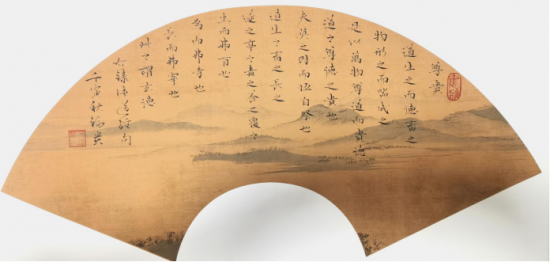 尊貴
道生之而德畜之
物形之而器成之
是以萬物尊道而貴德
道之尊德之貴也
夫莫之爵而恆自然也
道生之畜之長之
遂之亭之毒之養之覆之
生而弗有也
為而弗恃也
長而弗宰也
此之謂玄德
壬寅秋